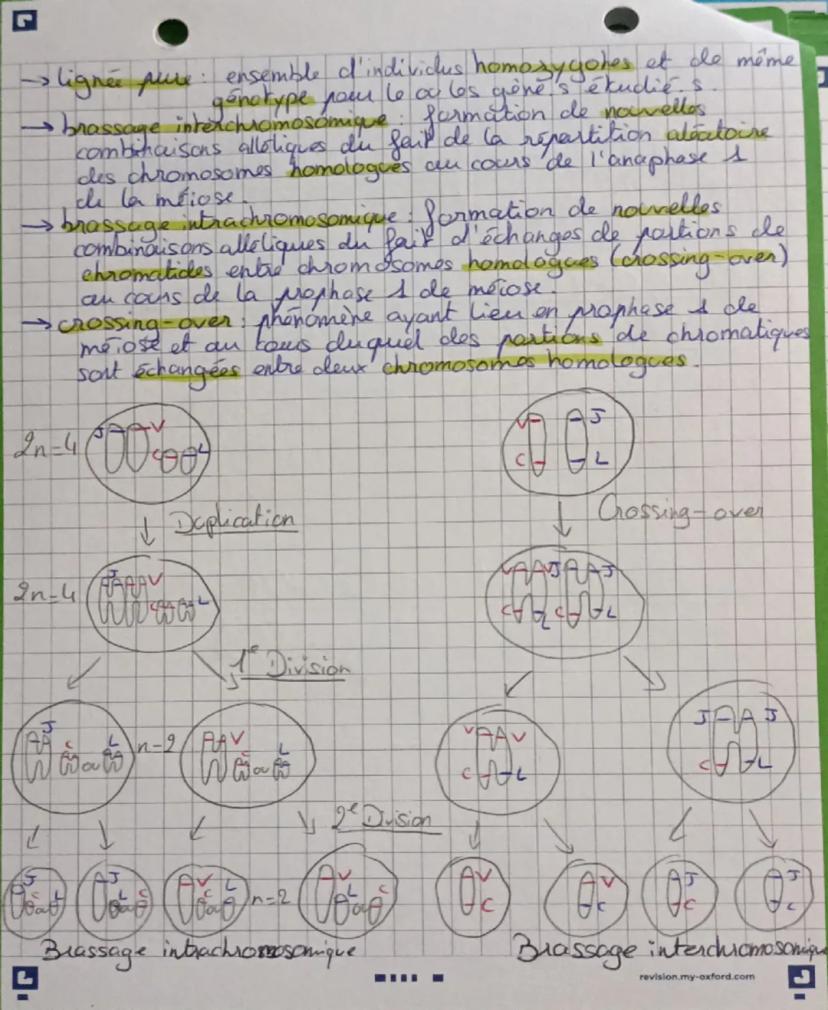 → lignée pure : ensemble d'individus homozygotes et de même
génotype pour le ou les gènes étudiés.
→ brassage interchromosomique : formation de nouvelles
combinaisons alléliques du fait de la répartition aléatoire
des chromosomes homologues au cours de l'anaphase 1
de la méiose.
→ brassage intrachromosomique : formation de nouvelles
combinaisons alléliques du fait d'échanges de portions de
chromatides entre chromosomes homologues (crossing-over)
au cours de la prophase 1 de méiose.
→ crossing-over : phénomène ayant lieu en prophase 1 de
méiose et au cours duquel des portions de chromatiques
sont échangées entre deux chromosomes homologues.
2n=4 J V C L
V J C L
Duplication
Crossing-over
2n=4 J V C L
V V J J C L C L
1e Division
J C ou L n=2 V C ou L
V V C L
J J C L
2e Division
J C ou L
J L ou C
V C ou L n=2
V L ou C
V C
V L
J C
J L
Brassage intrachromosomique
Brassage interchromosomique
revision.my-oxford.com